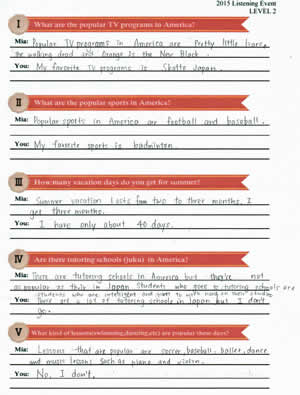 2015 Listening Event
LEVEL 2
I What are the popular TV programs in America?
Mia: Popular TV programs in America are Pretty little liars,
the walking dead and Orange Is the New Black.
You: My favorite TV programs is Skatto Japan.
II What are the popular sports in America?
Mia: Popular sports in America are football and baseball.
You: My favorite sports is badminton.
III How many vacation days do you get for summer?
Mia: Summer vacation lasts from two to three months. I
get three months.
You: I have only about 40 days.
IV Are there tutoring schools (juku) in America?
Mia: There are tutoring schools in America but they're not
as popular as they in Japan Students who goes to tutoring schools are
students who are intelligent and want to work hard on their studies
You: There are a lot of tutoring schools in Japan but I don't
go.
V What kind of lessons(swimming,dancing,etc) are popular these days?
Mia: Lessons that are popular are soccer, baseball, ballet, dance
and music lessons such as piano and violin.
You: No, I don't.